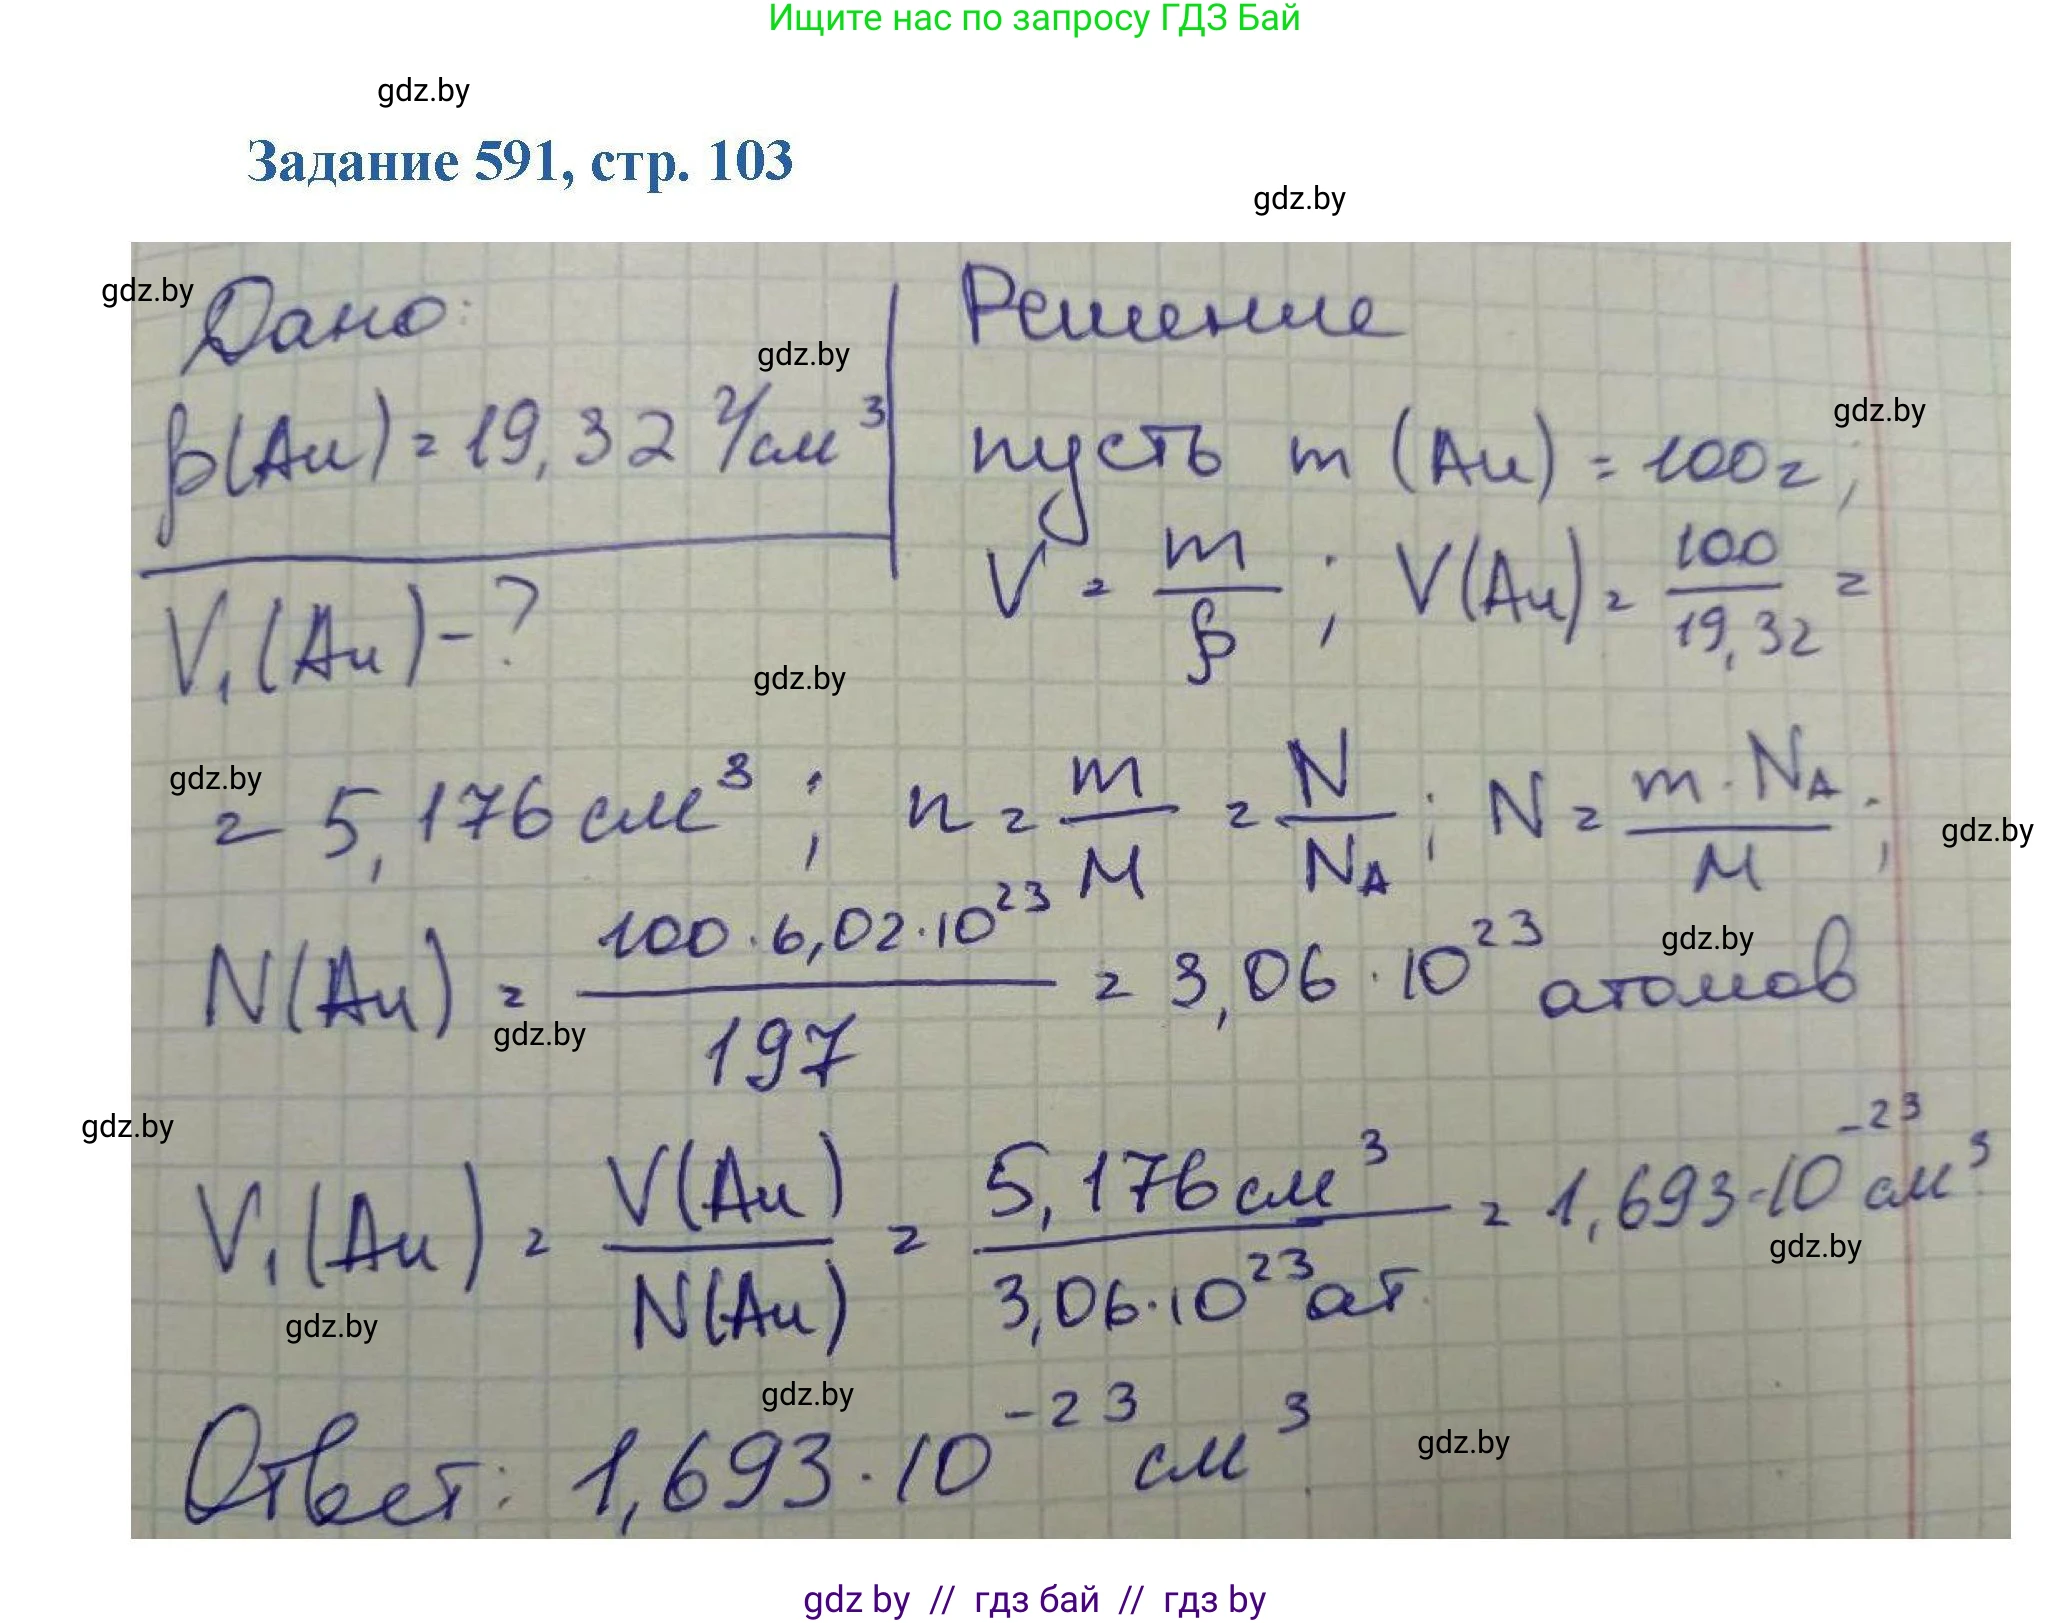 Ищите нас по запросу ГДЗ Бай
gdz.by
Задание 591, стр. 103
gdz.by
gdz.by
Дано:
Решение
gdz.by
ρ(Au) = 19,32 г/см³
gdz.by
пусть m (Au) = 100г;
V = m/ρ ; V(Au) = 100/19,32 =
V₁(Au) - ?
gdz.by
gdz.by
= 5,176 см³ ; n = m/M = N/N_A ; N = m · N_A/M ;
gdz.by
N(Au) = 100 · 6,02 · 10²³/197 = 3,06 · 10²³ атомов
gdz.by
gdz.by
gdz.by
V₁(Au) = V(Au)/N(Au) = 5,176 см³/3,06 · 10²³ ат. = 1,693 · 10⁻²³ см³
gdz.by
gdz.by
gdz.by
Ответ: 1,693 · 10⁻²³ см³.
gdz.by
gdz by // гдз бай // гдз by